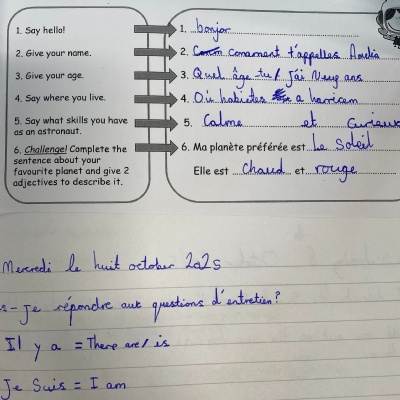 1. Say hello!
1. bonjor
2. Give your name.
2. comament t'appelles
3. Give your age.
3. Quel âge tu/ j'ai neuf ans
4. Say where you live.
4. Où habietes a
5. Say what skills you have as an astronaut.
5. Calme et curieux
6. Challenge! Complete the sentence about your favourite planet and give 2 adjectives to describe it.
6. Ma planète préférée est Le Soleil
Elle est chaud et rouge
Mercredi le huit october 2025
s-je répondre aux questions d'entretien?
Il y a = There are/ is
Je Suis = I am